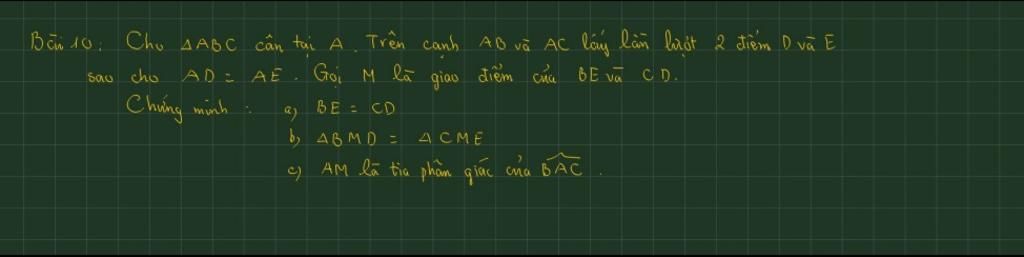 Bài 10: Cho △ABC cân tại A. Trên cạnh AB và AC lấy lần lượt 2 điểm D và E
sao cho AD = AE. Gọi M là giao điểm của BE và CD.
Chứng minh : a) BE = CD
b) △BMD = △CME
c) AM là tia phân giác của \widehat{BAC}.